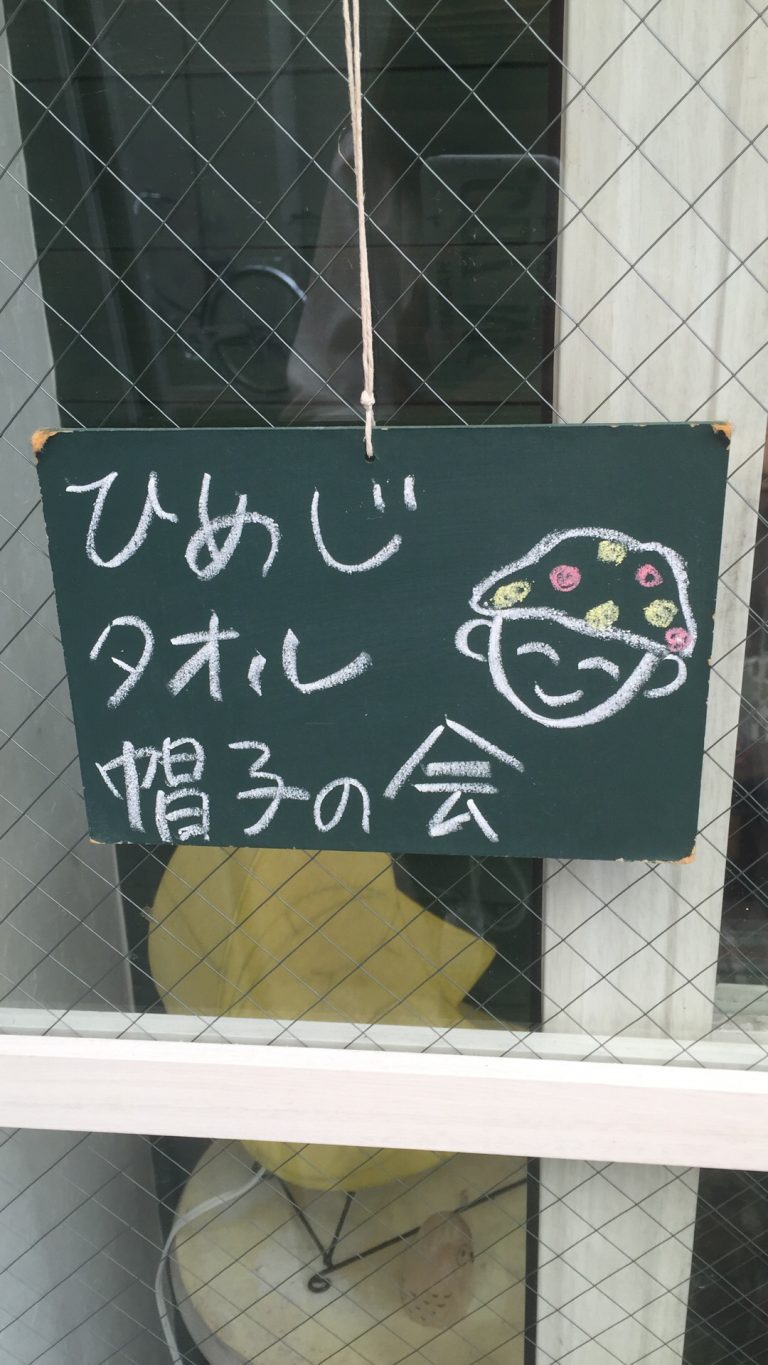 ひめじ
タオル
帽子の会